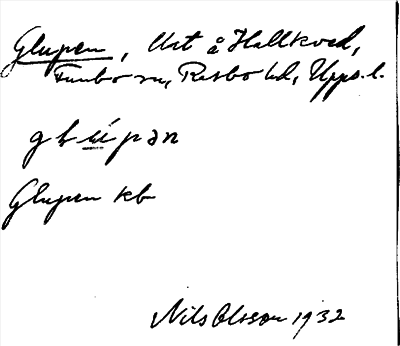 Glupen, Urt å Hallkved,
Funbo sn, Rasbo hd, Upps. l.
glúpən
Glupen kb
Nils Olsson 1932